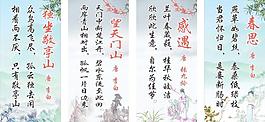 独坐敬亭山
唐 李白
众鸟高飞尽，孤云独去闲。
相看两不厌，只有敬亭山。
望天门山
唐 李白
天门中断楚江开，碧水东流至此回。
两岸青山相对出，孤帆一片日边来。
感遇
唐 张九龄
兰叶春葳蕤，桂华秋皎洁。
欣欣此生意，自尔为佳节。
春思
唐 李白
燕草如碧丝，秦桑低绿枝。
当君怀归日，是妾断肠时。